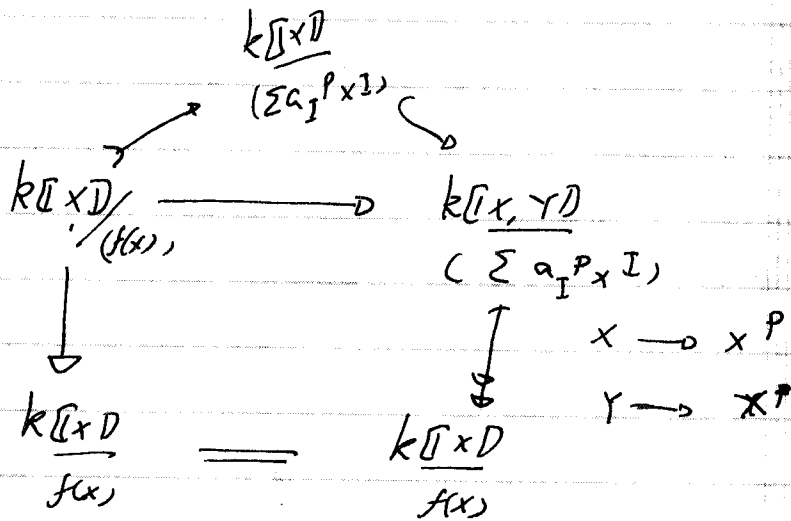 k⟦x⟧
(Σ a_I^p x^I)
k⟦x⟧/(f(x)) → k⟦x, Y⟧
(Σ a_I^p x^I)
x → x^p
Y → x^p
k⟦x⟧ = k⟦x⟧
f(x) f(x)